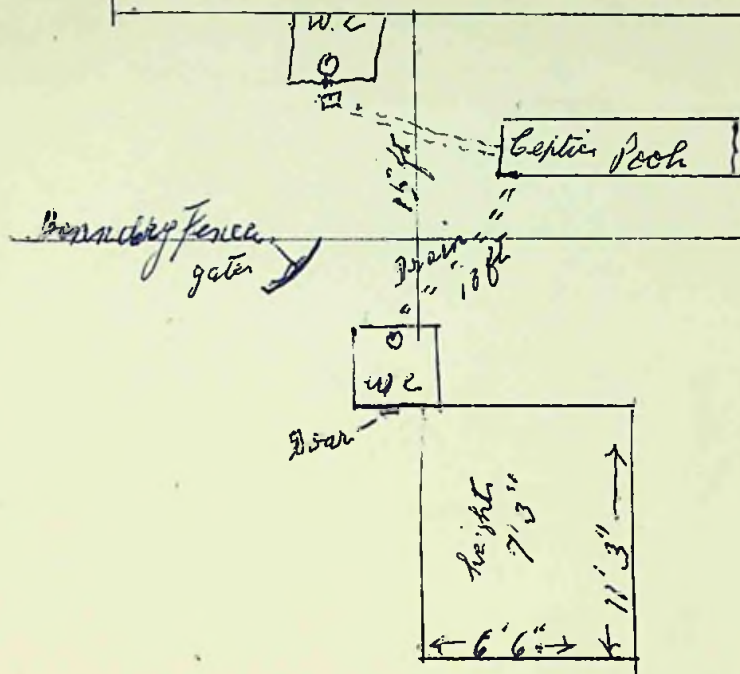 W.C
Ceptic Pooh
Boundery Fence
gates
Drain
18 ft
W C
Door
height
7' 3"
11' 3"
6' 6"